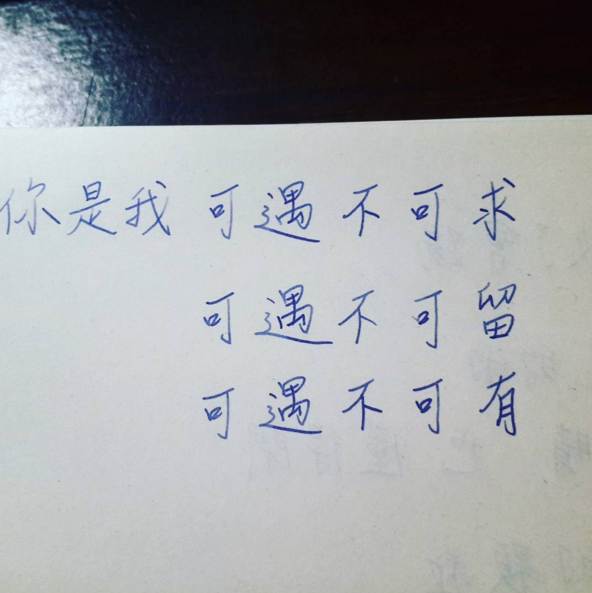 你是我 可遇不可求
可遇不可留
可遇不可有